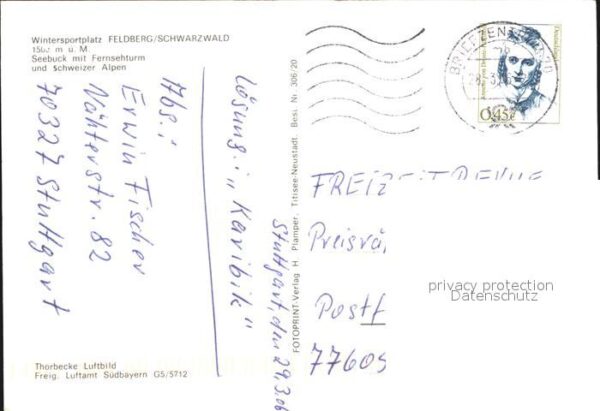 Wintersportplatz FELDBERG/SCHWARZWALD
m ü. M.
Seebuck mit Fernsehturm
und Schweizer Alpen
Abs.:
Erwin Fischer
82
70327 Stuttgart
Lösung: "Karibik"
Stuttgart, den 29.3.06
Thorbecke Luftbild
Freig. Luftamt Südbayern G5/5712
FOTOPRINT-Verlag H. Plamper, Titisee-Neustadt. Best. Nr. 306/20
BRIEFZENTRUM
0,45€
FREIZEITREVUE
Preisrä
Postf
77605
privacy protection
Datenschutz